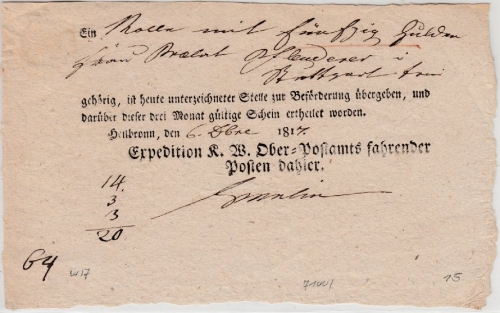 Ein Rolle mit fünfzig Gulden
Herrn Praelat
Stuttgart frei
gehörig, ist heute unterzeichneter Stelle zur Beförderung übergeben, und
darüber dieser drei Monat gültige Schein ertheilet worden.
Heilbronn, den 6. Dbre 1817.
Expedition K. W. Ober-Postamts fahrender
Posten dahier.
14.
3
3
20
64
W17
15